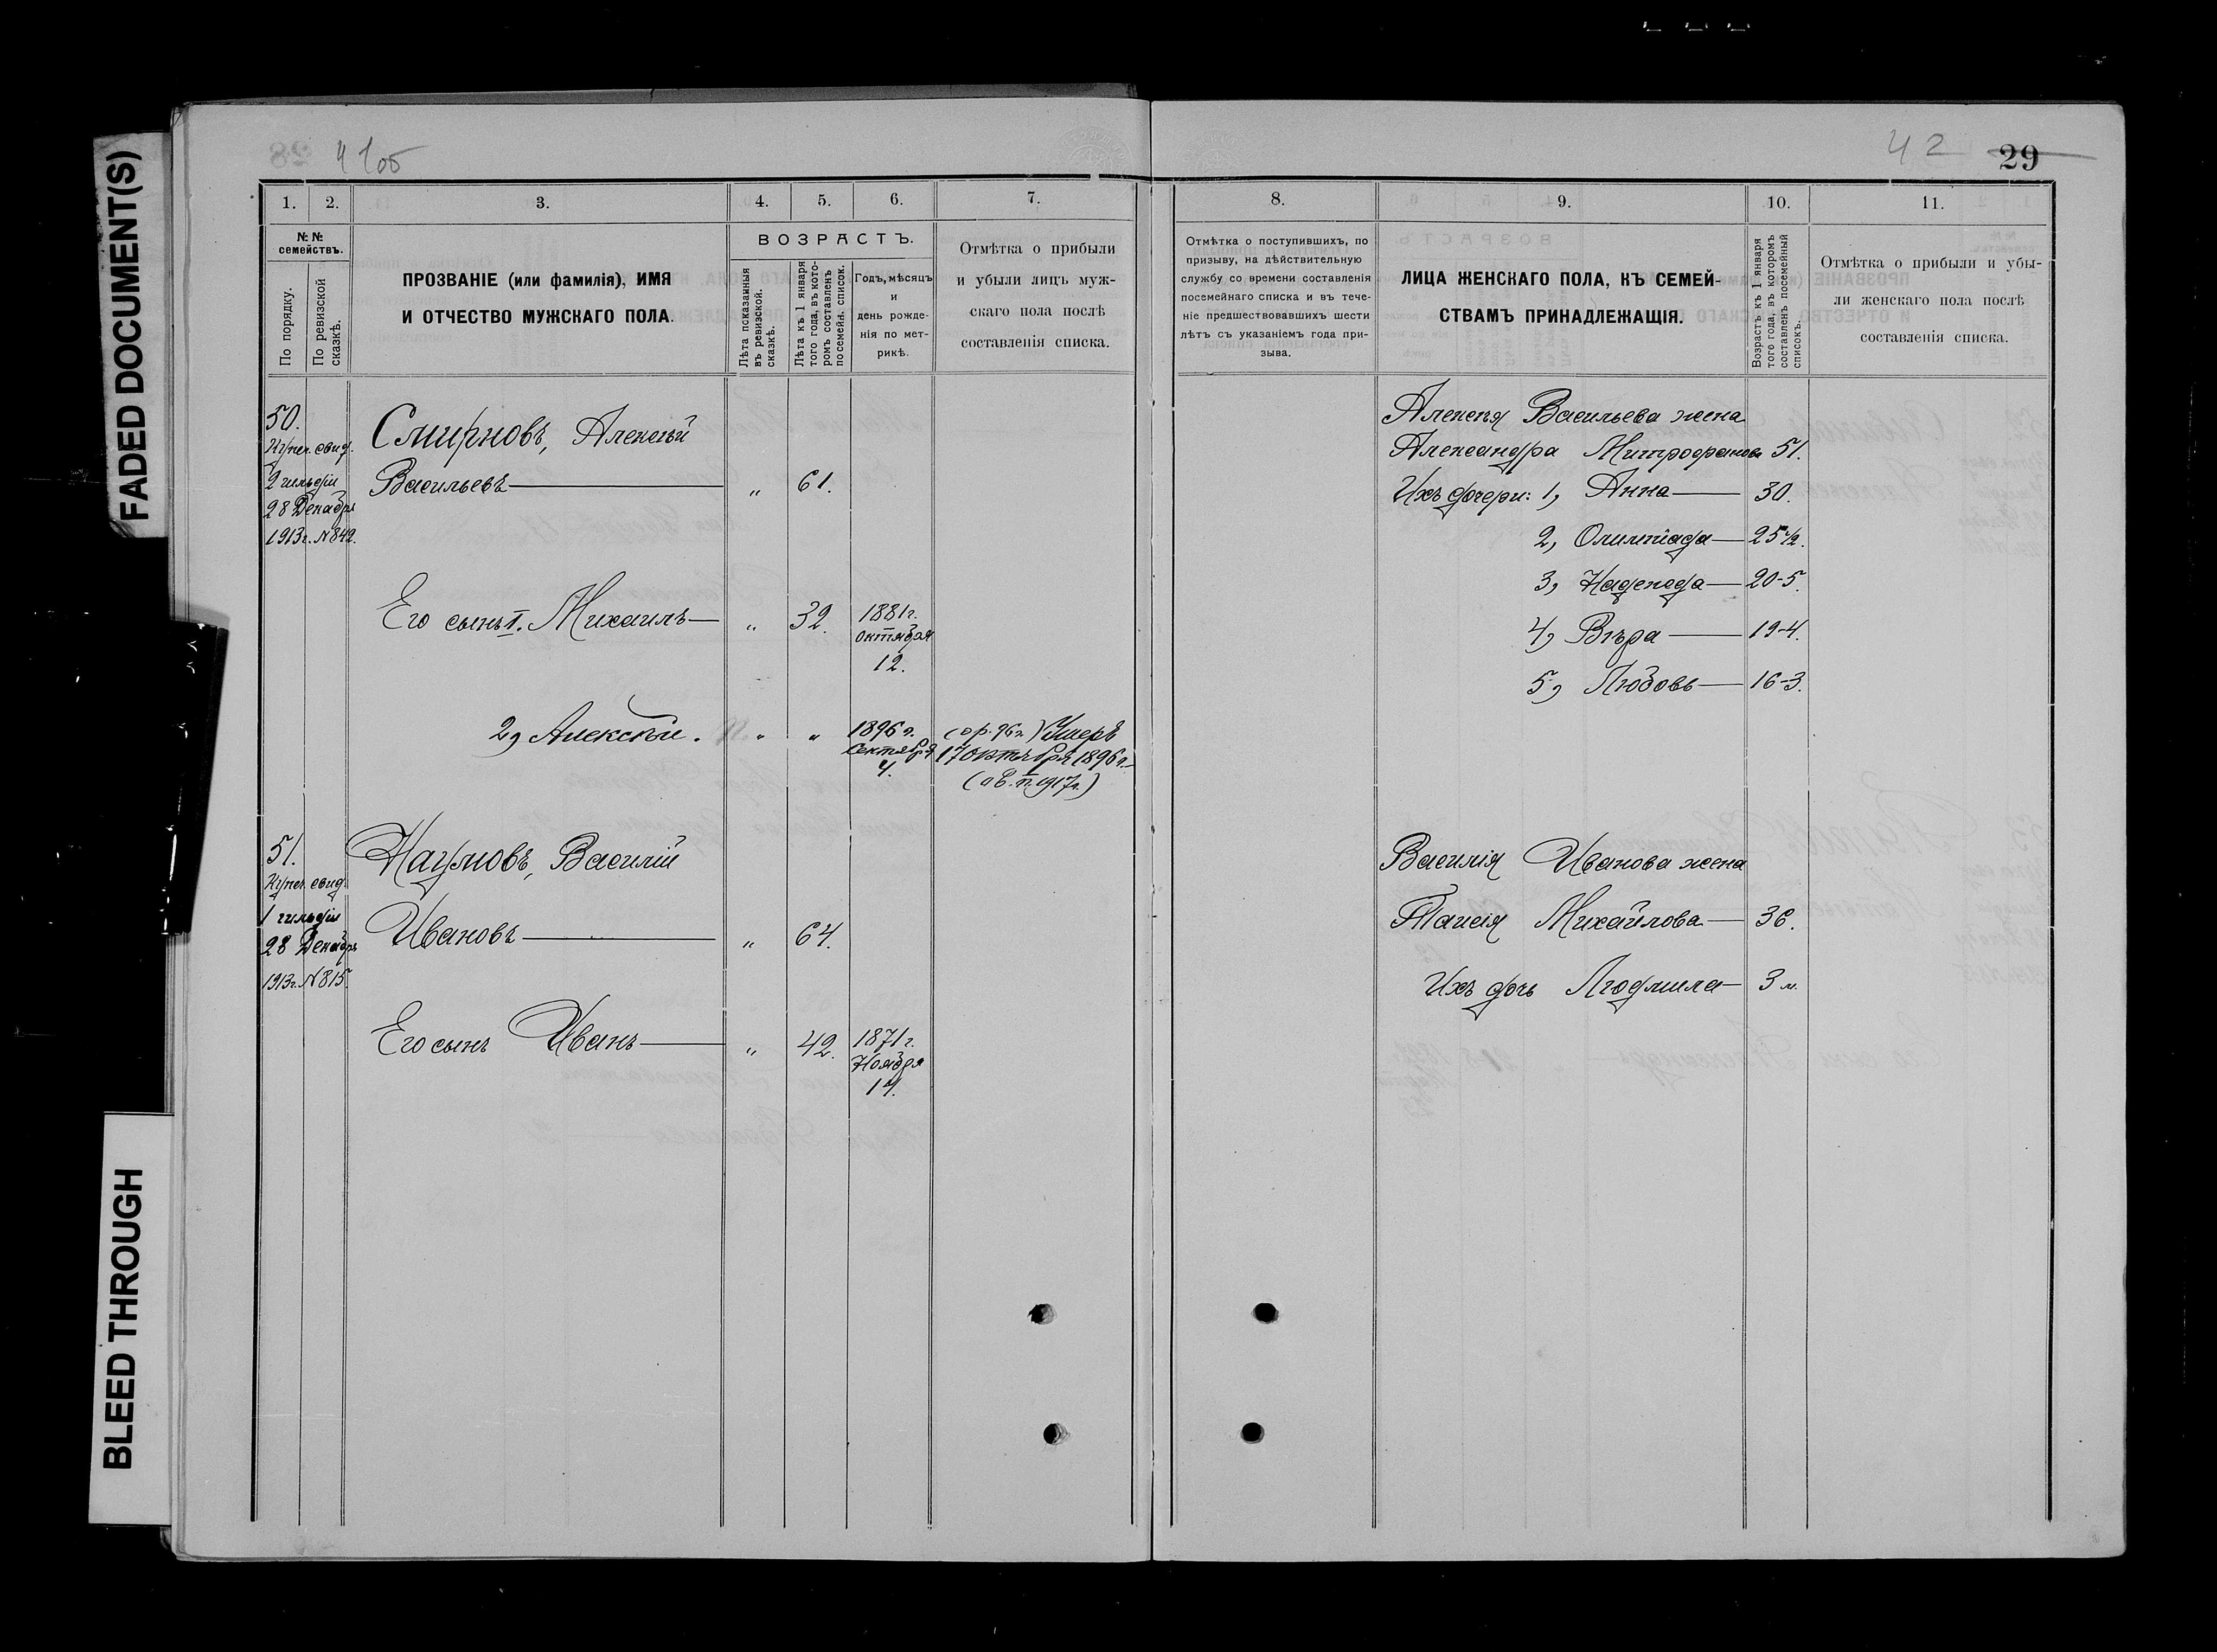 FADED DOCUMENT(S)
BLEED THROUGH
41об
42 29
1. 2. 3. 4. 5. 6. 7.
№№ семействъ.
По порядку.
По ревизской сказкѣ.
ПРОЗВАНІЕ (или фамилія), ИМЯ
И ОТЧЕСТВО МУЖСКАГО ПОЛА.
ВОЗРАСТЪ.
Лѣта показанныя
въ ревизской
сказкѣ.
Лѣта къ 1 января
того года, въ кото-
ромъ составленъ
посемейн. списокъ.
Годъ, мѣсяцъ
и
день рожде-
нія по мет-
рикѣ.
Отмѣтка о прибыли
и убыли лицъ муж-
скаго пола послѣ
составленія списка.
50.
Купеч. свид.
2 гильдіи
28 Декабря
1913г. №842.
Смирновъ, Алексѣй
Васильевъ — „ 61.
Его сынъ 1. Михаилъ — „ 32. 1881г.
октября
12.
2, Алексѣй. „ „ 1896 г.
Сентября
4.
(ор. 96г.) Умеръ
17 октября 1896г.
51.
Купеч. свид.
1 гильдіи
28 Декабря
1913г. №815.
Наумовъ, Василій
Ивановъ — „ 64.
Его сынъ Иванъ — „ 42. 1871г.
Ноября
14.
8. 9. 10. 11.
Отмѣтка о поступившихъ, по
призыву, на дѣйствительную
службу со времени составленія
посемейнаго списка и въ тече-
ніе предшествовавшихъ шести
лѣтъ съ указаніемъ года при-
зыва.
ЛИЦА ЖЕНСКАГО ПОЛА, КЪ СЕМЕЙ-
СТВАМЪ ПРИНАДЛЕЖАЩІЯ.
Возрастъ къ 1 января
того года, въ которомъ
составленъ посемейный
списокъ.
Отмѣтка о прибыли и убы-
ли женскаго пола послѣ
составленія списка.
Алексѣя Васильева жена
Александра Митрофанова 51.
Ихъ дочери: 1, Анна — 30.
2, Олимпіада — 25 1/2.
3, Надежда — 20-5.
4, Вѣра — 19-4.
5, Любовь — 16-3.
Василія Иванова жена
Таисія Михайлова — 36.
Ихъ дочь Людмила — 3 м.